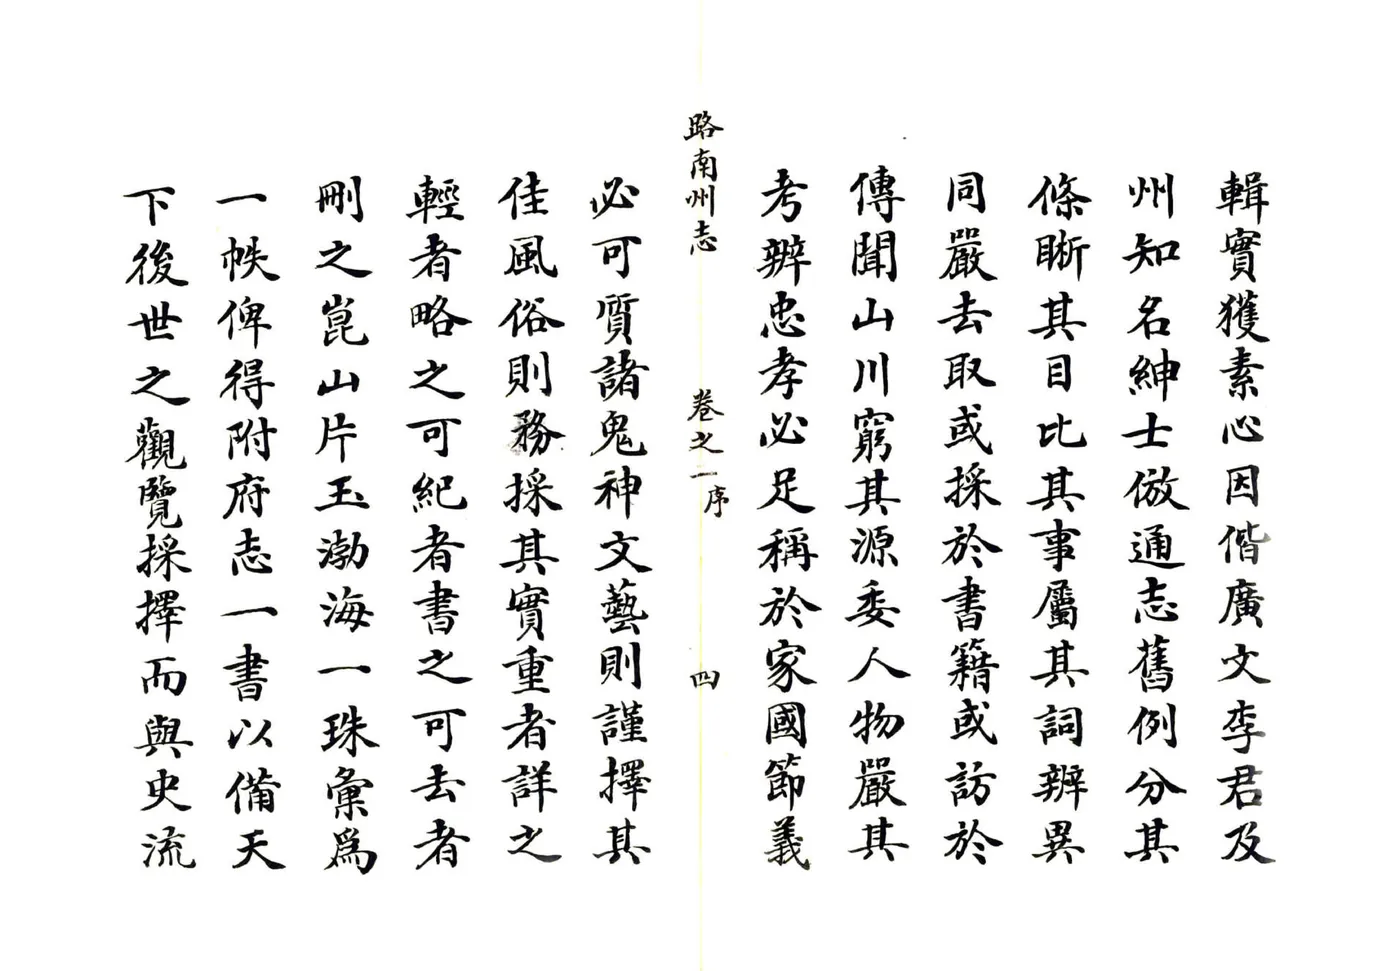 輯實獲素心因偕廣文李君及
州知名紳士倣通志舊例分其
條晣其目比其事屬其詞辨異
同嚴去取或採於書籍或訪於
傳聞山川窮其源委人物嚴其
考辨忠孝必足稱於家國節義
路南州志 卷之一序 四
必可質諸鬼神文藝則謹擇其
佳風俗則務採其實重者詳之
輕者略之可紀者書之可去者
刪之崑山片玉渤海一珠彙爲
一帙俾得附府志一書以備天
下後世之觀覽採擇而與史流